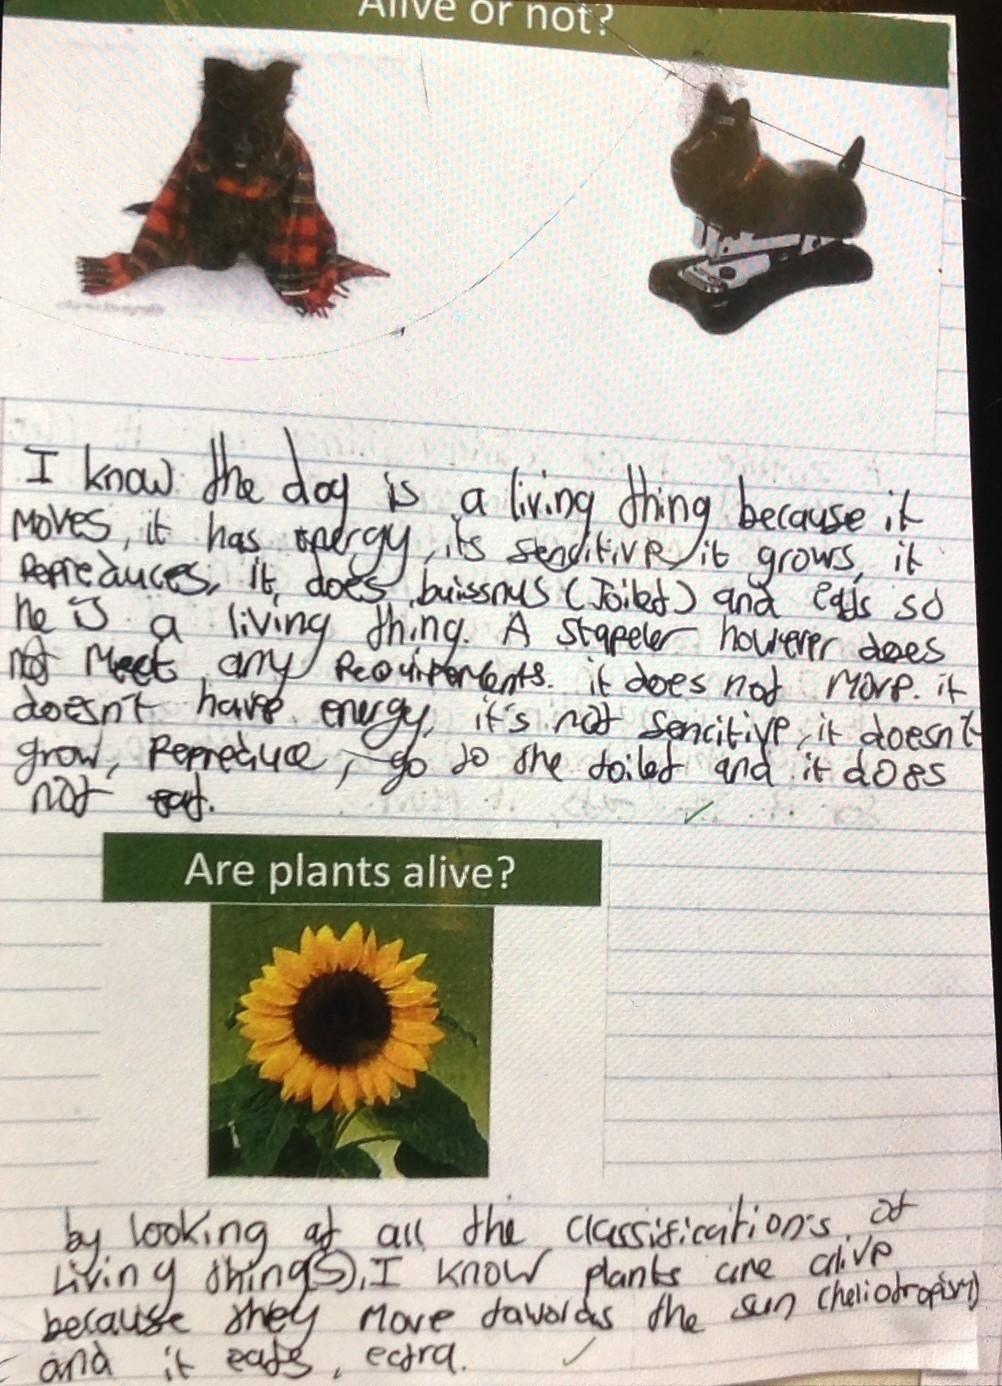 Alive or not?
I know the dog is a living thing because it
moves, it has energy, its sensitive, it grows, it
Repreduces, it does buissnus (Toilet) and eats so
he is a living thing. A stapeler however does
not Meet any Requirements. it does not move. it
doesn't have energy, it's not sencitive, it doesn't
grow, Repreduce, go to the toilet and it does
not eat.
Are plants alive?
by looking at all the classification's of
Living thing(s), I know plants are alive
because they move towards the sun (heliotropism)
and it eats, ectra.